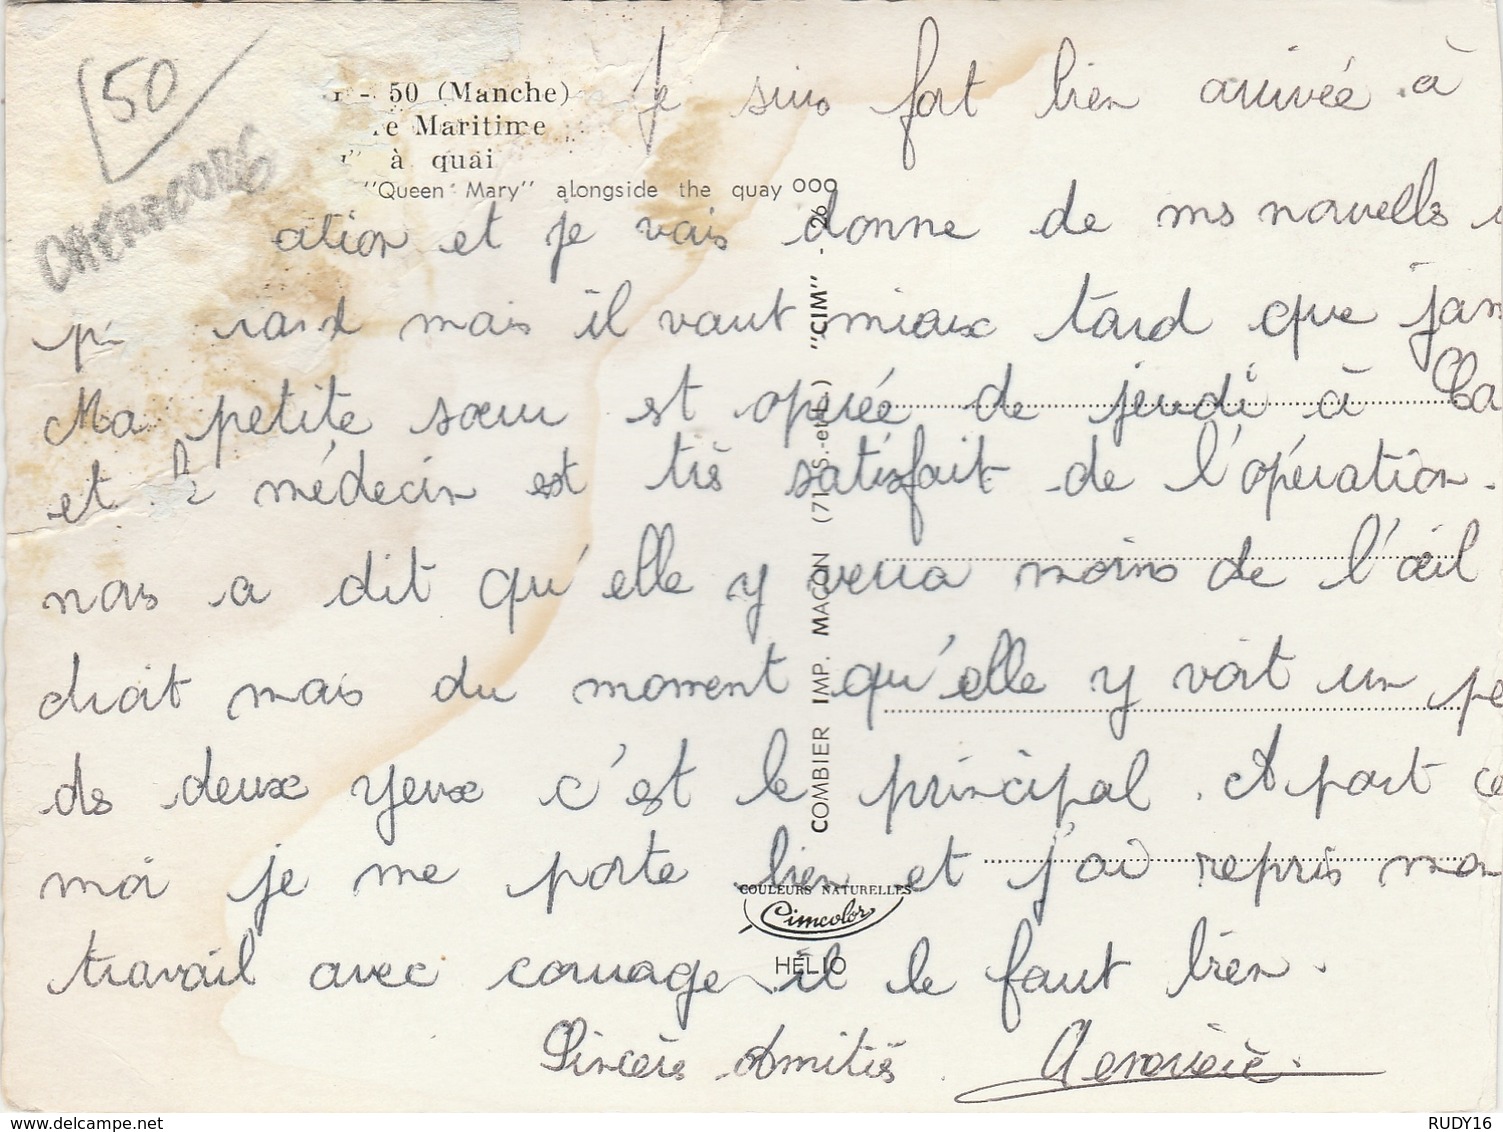 50
CHERBOURG
- 50 (Manche)
re Maritime
à quai
"Queen Mary" alongside the quay
Je suis fort bien arrivée à
ation et je vais donne de ms nouvells
tard mais il vaut mieux tard que jam
Ma petite sœur est opérée de jeudi à Ca
et le médecin est très satisfait de l'opération.
nous a dit qu'elle y verra moins de l'œil
droit mais du moment qu'elle y voit un pe
ds deux yeux c'est le principal. A part ce
moi je me porte bien et j'ai repris mon
travail avec courage il le faut bien.
Sincères Amitiés
COMBIER IMP. MACON (71 S.-et-L.) "CIM" - 26
COULEURS NATURELLES
Cimcolor
HÉLIO
www.delcampe.net
RUDY16